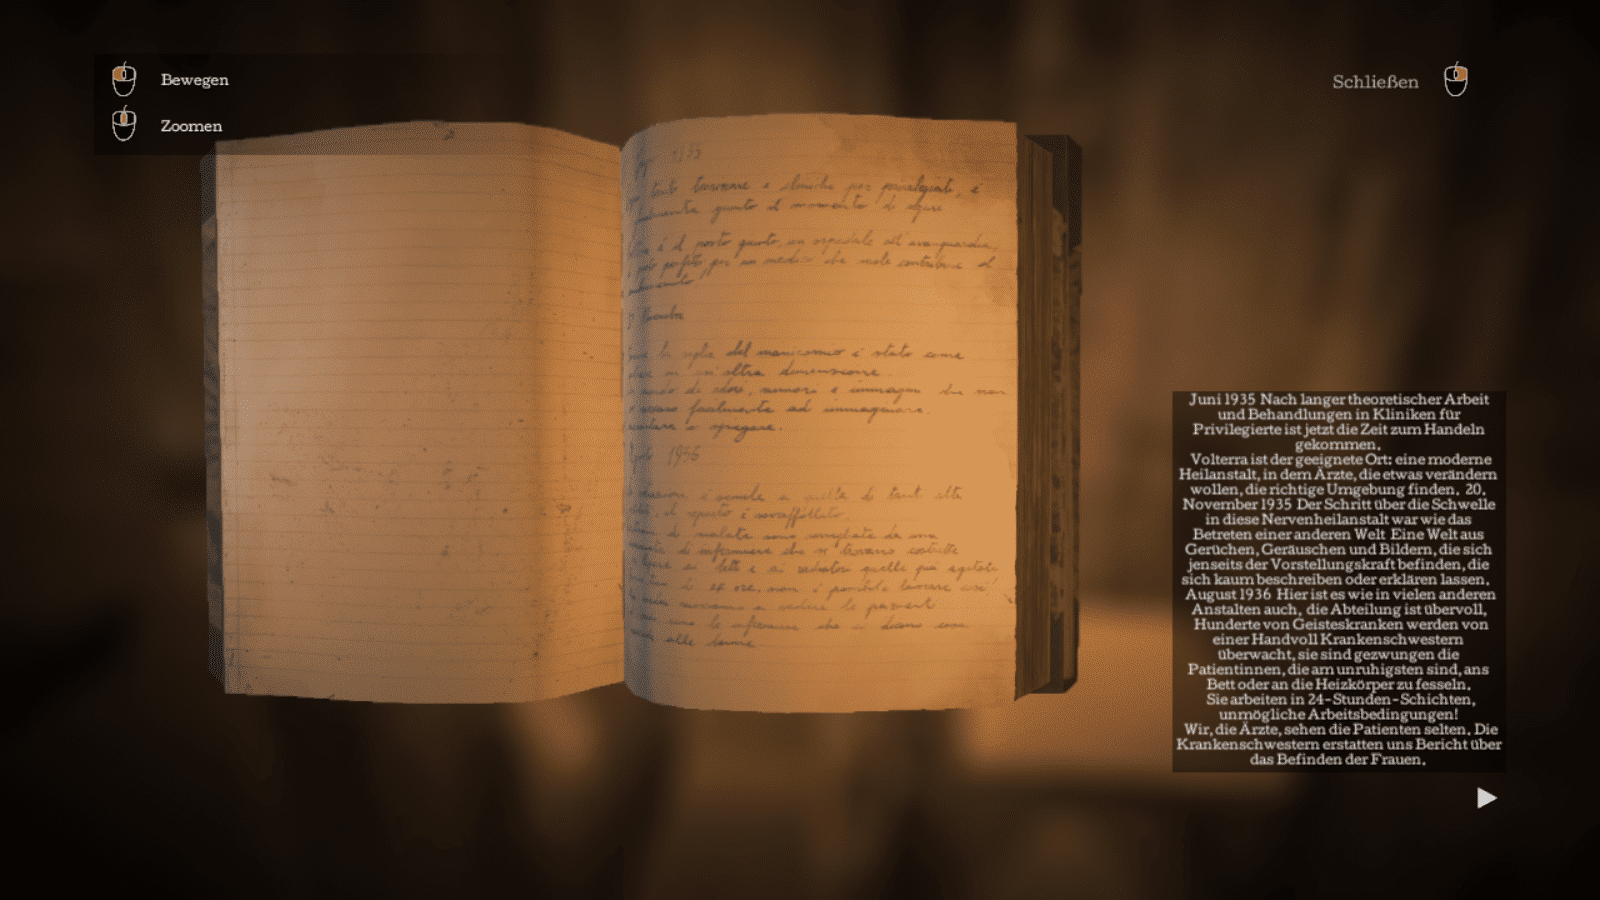 Bewegen
Zoomen
Schließen
1935
tanto teorizzare e cliniche per privilegiati, è
giunto il momento di agire
è il posto giusto, un ospedale all'avanguardia,
posto perfetto per un medico che vuole contribuire al
la soglia del manicomio è stato come
in un'altra dimensione.
mondo di odori, rumori e immagini che non
facilmente ad immaginare.
o spiegare.
1936
è simile a quella di tanti altri
il reparto è sovraffollato.
di malate sono sorvegliate da una
di infermiere che si trovano costrette
ai letti e ai radiatori quelle più agitate
di 24 ore, non è possibile lavorare così!
a vedere le pazienti
sono le infermiere che ci dicono come
Juni 1935 Nach langer theoretischer Arbeit
und Behandlungen in Kliniken für
Privilegierte ist jetzt die Zeit zum Handeln
gekommen.
Volterra ist der geeignete Ort: eine moderne
Heilanstalt, in dem Ärzte, die etwas verändern
wollen, die richtige Umgebung finden. 20.
November 1935 Der Schritt über die Schwelle
in diese Nervenheilanstalt war wie das
Betreten einer anderen Welt Eine Welt aus
Gerüchen, Geräuschen und Bildern, die sich
jenseits der Vorstellungskraft befinden, die
sich kaum beschreiben oder erklären lassen.
August 1936 Hier ist es wie in vielen anderen
Anstalten auch, die Abteilung ist übervoll,
Hunderte von Geisteskranken werden von
einer Handvoll Krankenschwestern
überwacht, sie sind gezwungen die
Patientinnen, die am unruhigsten sind, ans
Bett oder an die Heizkörper zu fesseln.
Sie arbeiten in 24-Stunden-Schichten,
unmögliche Arbeitsbedingungen!
Wir, die Ärzte, sehen die Patienten selten. Die
Krankenschwestern erstatten uns Bericht über
das Befinden der Frauen.